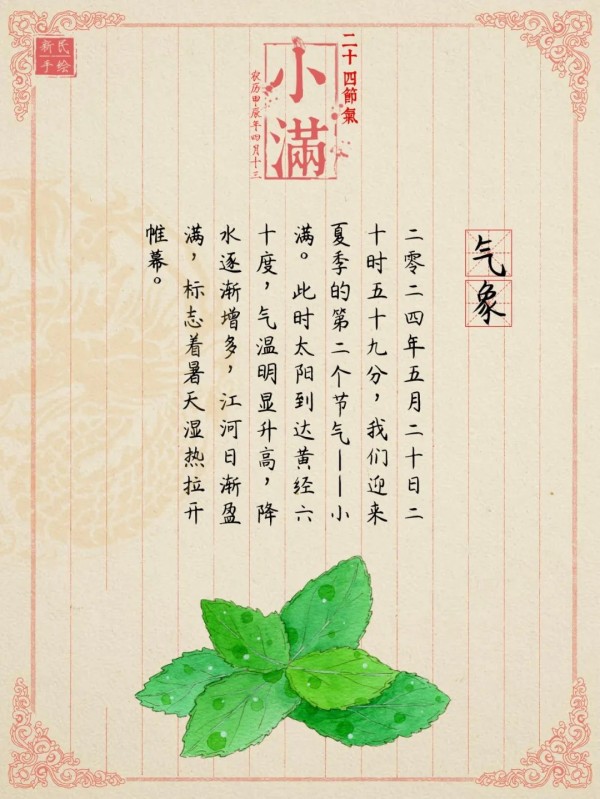 新民
手绘
二十四節氣
小滿
农历甲辰年四月十三
气象
二零二四年五月二十日二
十时五十九分，我们迎来
夏季的第二个节气——小
满。此时太阳到达黄经六
十度，气温明显升高，降
水逐渐增多，江河日渐盈
满，标志着暑天湿热拉开
帷幕。